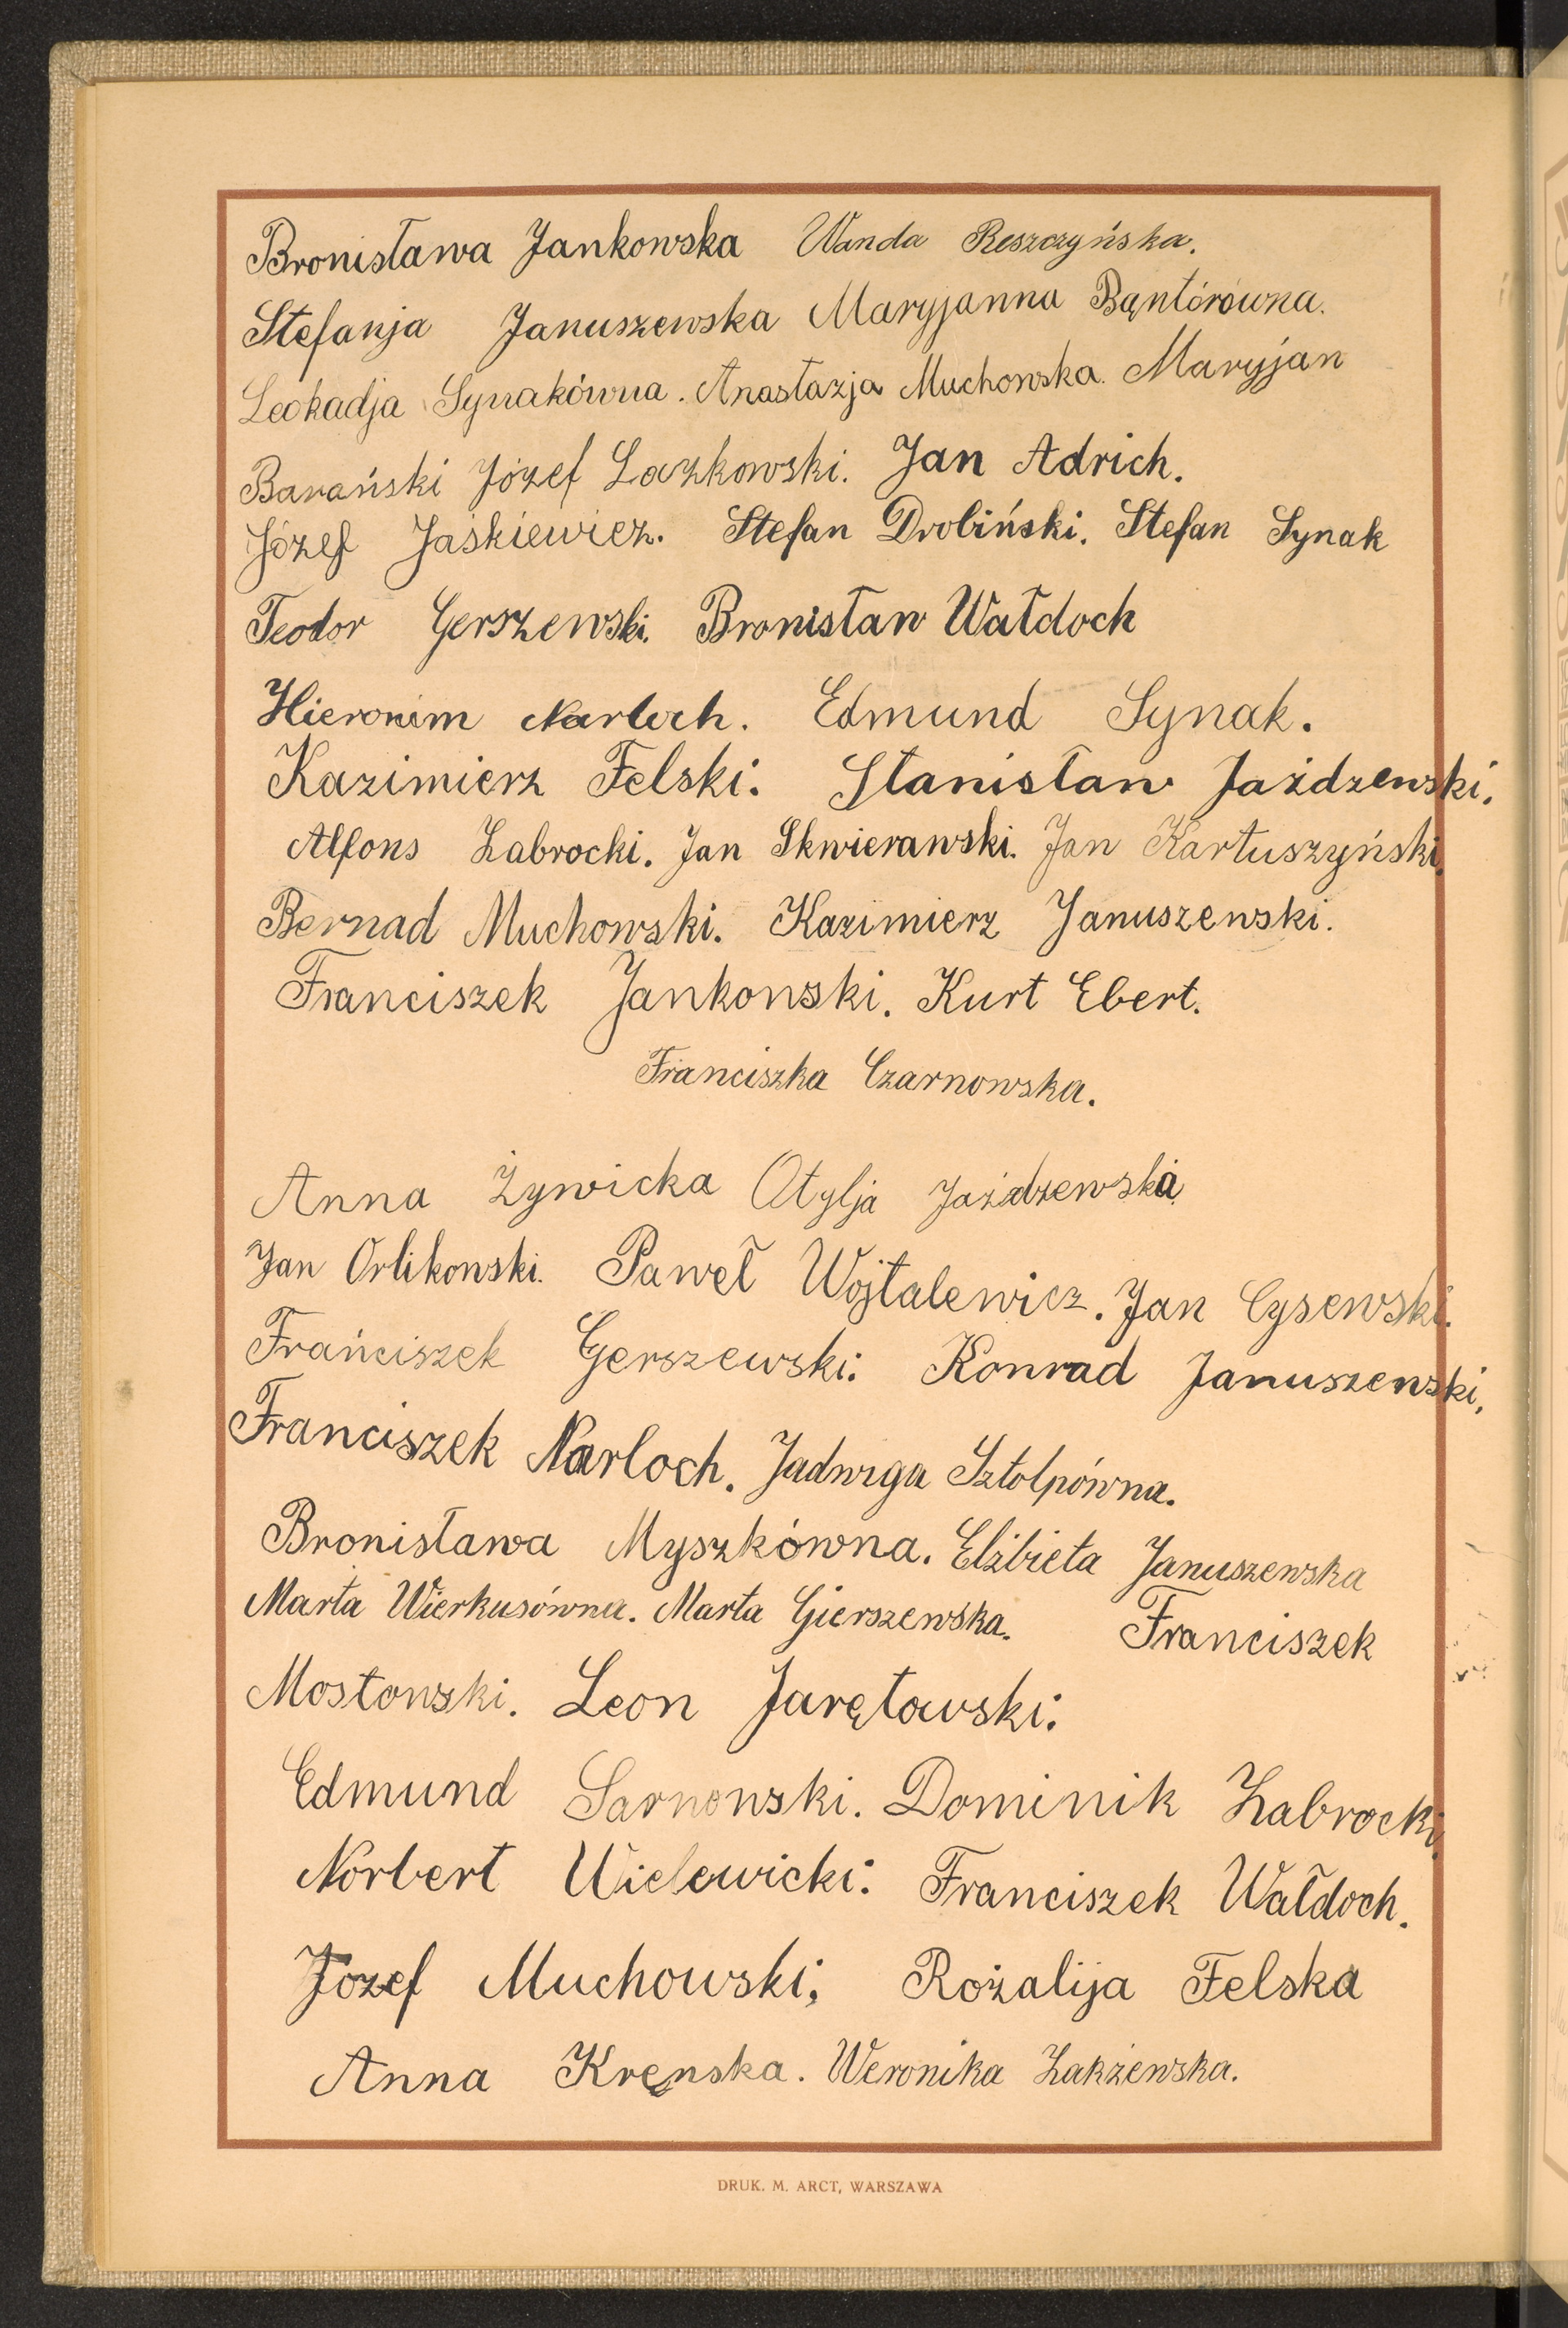 Bronisława Jankowska Wanda Reszczyńska.
Stefanja Januszewska Maryjanna Bąntórówna.
Leokadja Synakówna. Anastazja Muchowska. Maryjan
Barański Józef Lazkowski. Jan Adrich.
Józef Jaśkiewicz. Stefan Drobiński. Stefan Synak
Teodor Gerszewski. Bronisław Wałdoch
Hieronim Narloch. Edmund Synak.
Kazimierz Felski. Stanisław Jażdzewski.
Alfons Zabrocki. Jan Skwierawski. Jan Kartuszyński.
Bernad Muchowski. Kazimierz Januszewski.
Franciszek Jankowski. Kurt Ebert.
Franciszka Czarnowska.
Anna Żywicka Otylja Jażdzewska
Jan Orlikowski. Paweł Wojtalewicz. Jan Cysewski.
Frańciszek Gerszewski. Konrad Januszewski.
Franciszek Narloch. Jadwiga Sztolpówna.
Bronisława Myszkówna. Elżbieta Januszewska
Marta Wierkusówna. Marta Gierszewska. Franciszek
Mostowski. Leon Jarętowski.
Edmund Sarnowski. Dominik Zabrocki.
Norbert Wielewicki. Franciszek Wałdoch.
Józef Muchowski. Rożalija Felska
Anna Kręnska. Weronika Zakżewska.
DRUK. M. ARCT, WARSZAWA